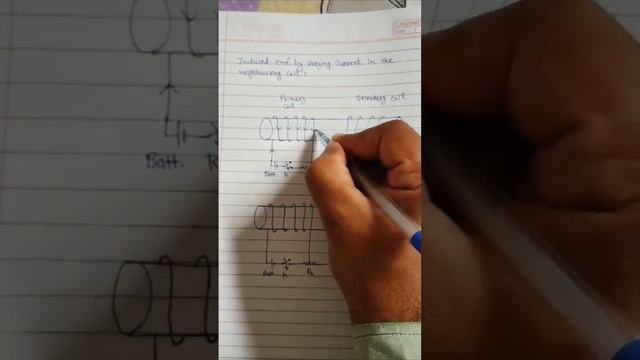 Induced emf by Varying Current in the
neighbouring coil :
Primary
coil
Secondary coil
Batt. K
Batt. K Rh
Batt. K